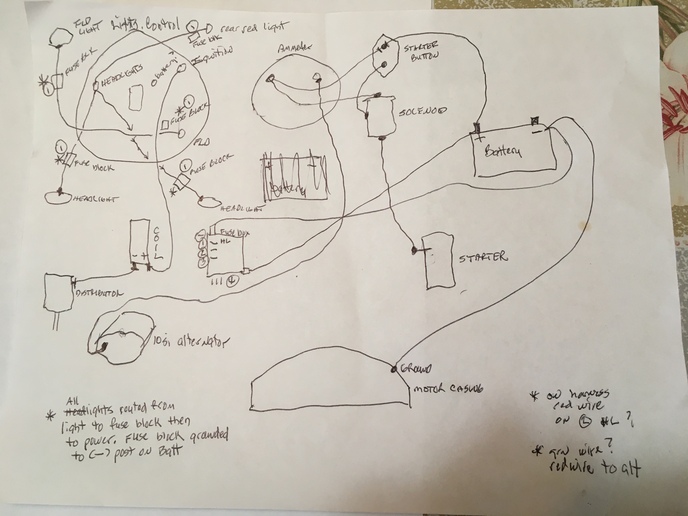 FLD
LIGHT
Lights Control
rear red light
FUSE BLK
FUSE BLK
HEADLIGHTS
battery
Ignition
AMMETER
STARTER
BUTTON
FUSE BLOCK
FLD
SOLENOID
+
-
Battery
Fuse
block
FUSE BLOCK
battery
HEADLIGHT
HEADLIGHT
COIL
- +
Fuse box
HL
DISTRIBUTOR
STARTER
10si alternator
GROUND
MOTOR CASING
* All
lights routed from
light to fuse block then
to power. Fuse block grounded
to (-) post on Batt
* on harness
red wire
on HL?
* grn wire?
red wire to alt